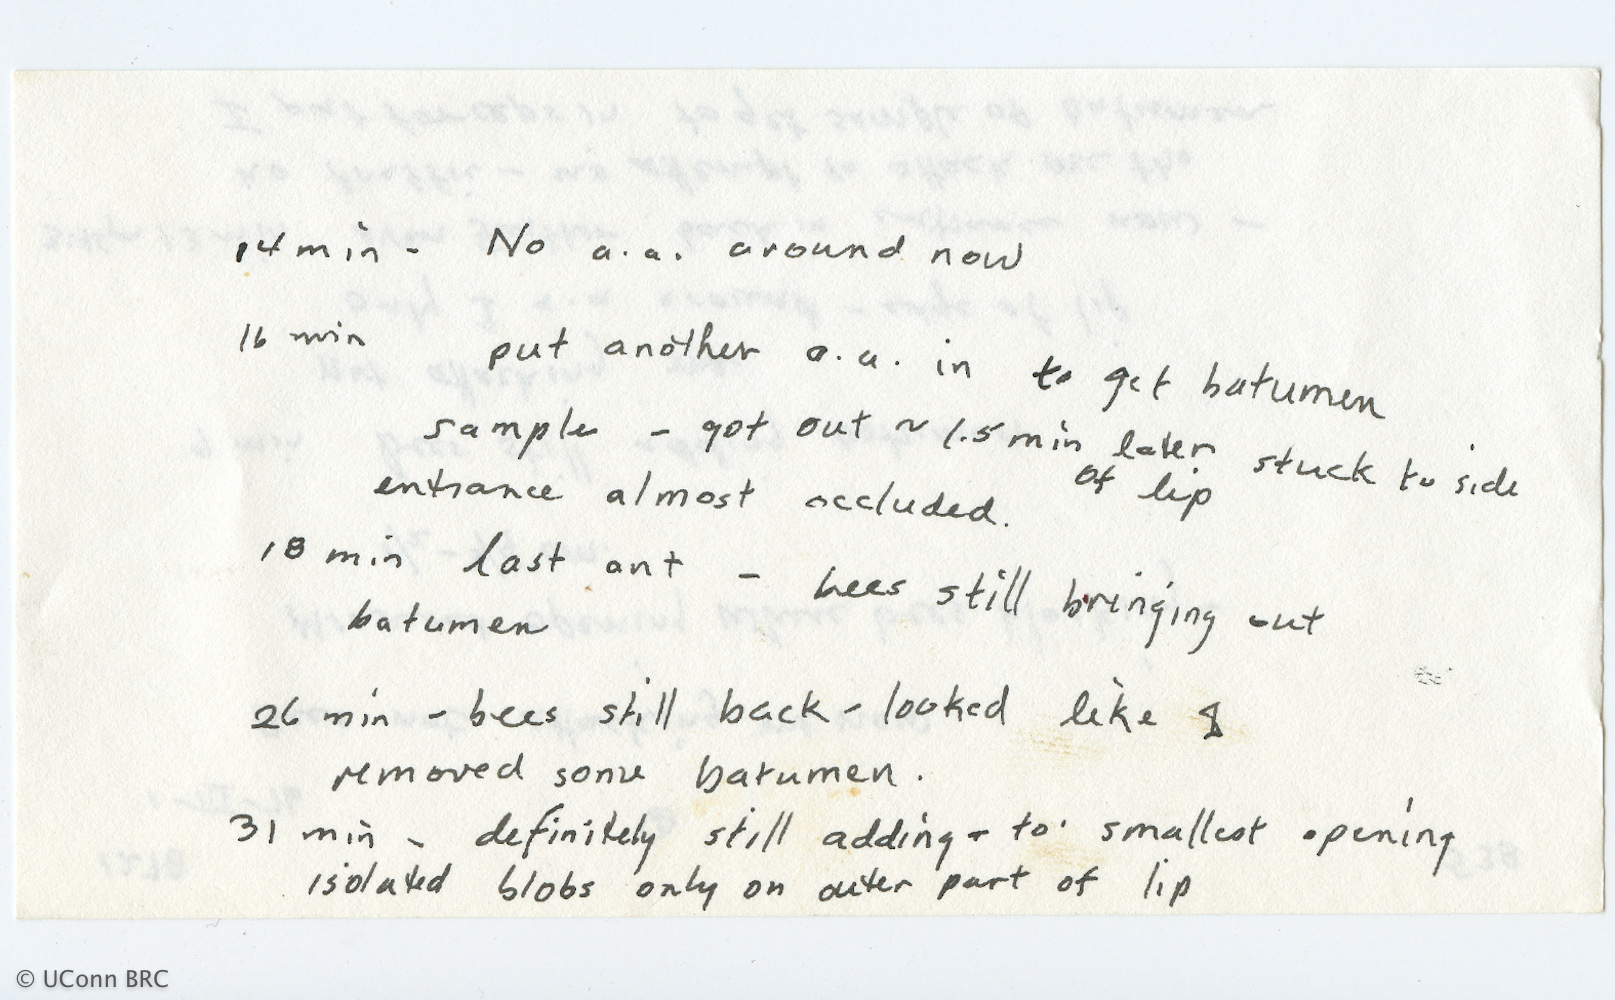 14 min - No a.a. around now
16 min put another a.a. in to get batumen
sample - got out ~ 1.5 min later stuck to side
of lip
entrance almost occluded.
18 min last ant - bees still bringing out
batumen
26 min - bees still back - looked like &
removed some batumen.
31 min - definitely still adding - to smallest opening
isolated blobs only on outer part of lip
© UConn BRC